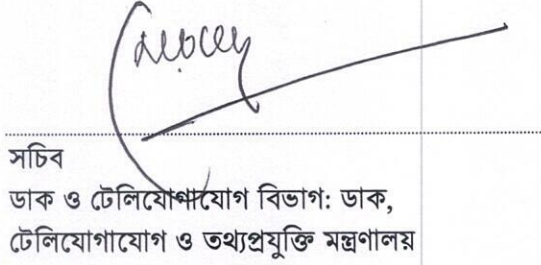 সচিব
ডাক ও টেলিযোগাযোগ বিভাগ: ডাক,
টেলিযোগাযোগ ও তথ্যপ্রযুক্তি মন্ত্রণালয়